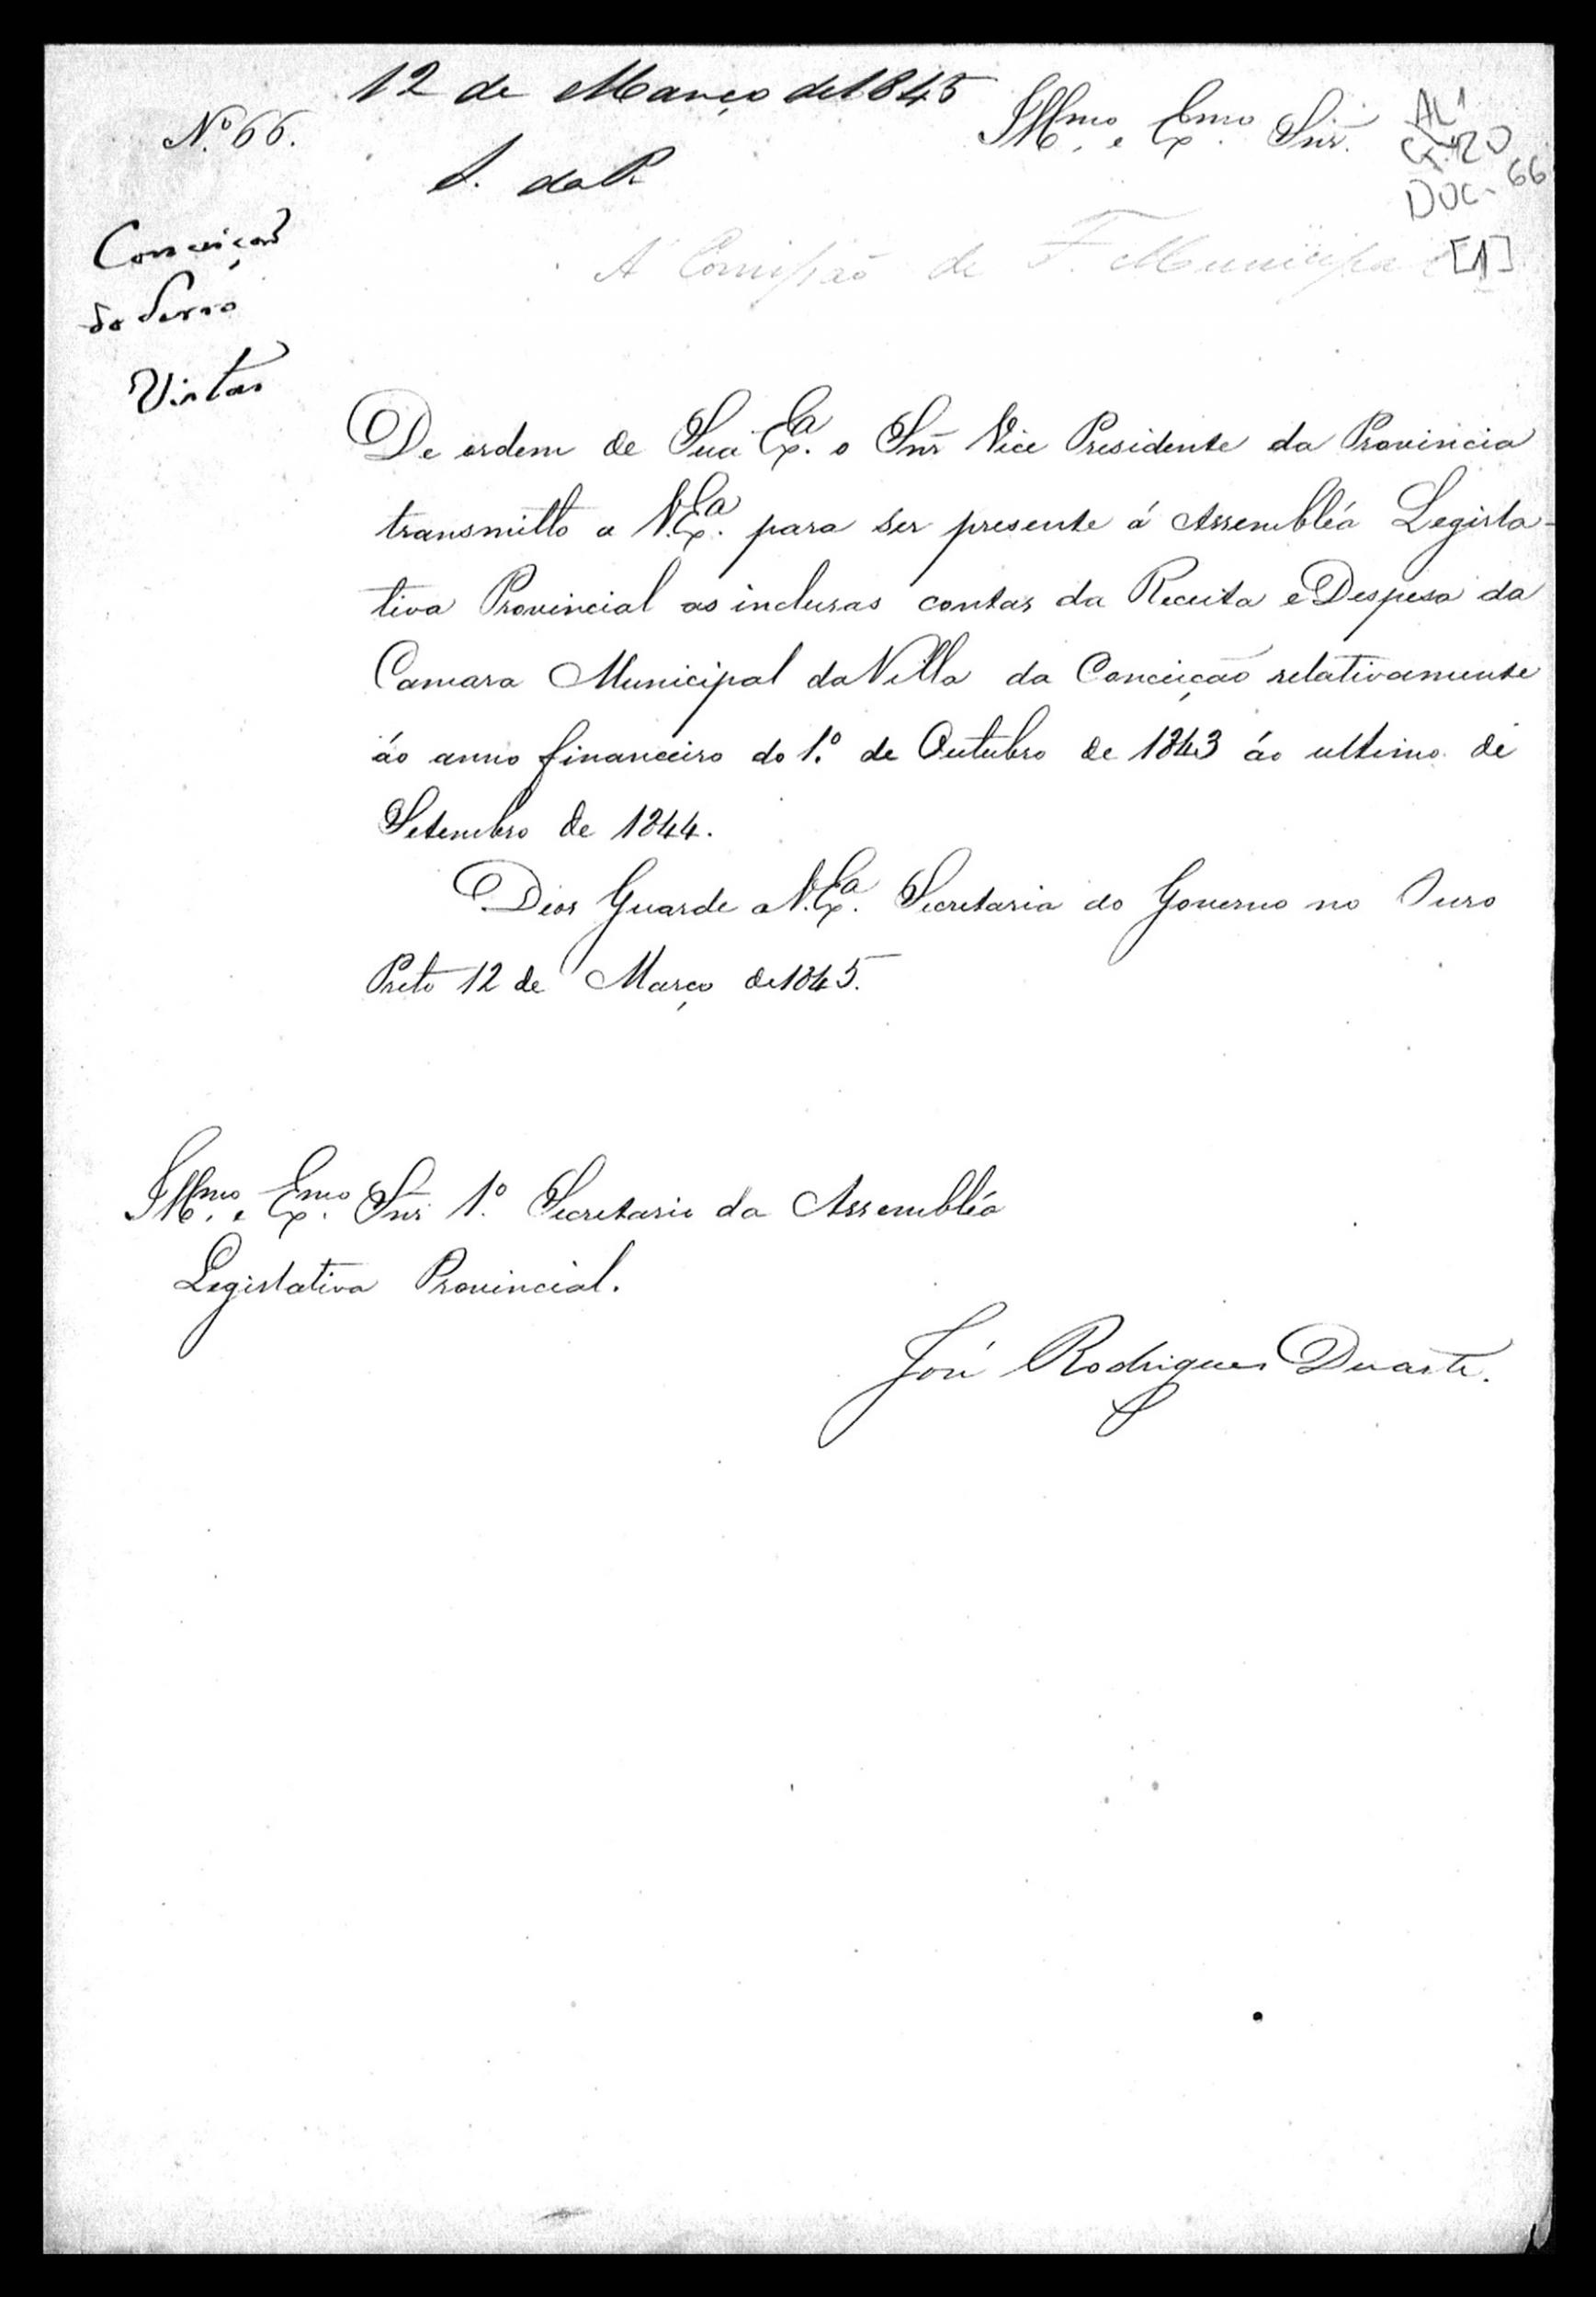 12 de Março de 1845
Nº 66.
Illmo. e Exmo. Snr.
AL1
DOC. 66
[1]
S. da P.
A Comissão de F. Municipa
Conceiçaõ
do Serro
Vistas
De ordem de Sua Exa. o Snr Vice Presidente da Provincia
transmitto a V.Exa. para ser presente á Assembléa Legisla-
tiva Provincial as inclusas contas da Receita e Despesa da
Camara Municipal da Villa da Conceição relativamente
áo anno financeiro do 1.º de Outubro de 1843 áo ultimo de
Setembro de 1844.
Deos Guarde a V.Exa. Secretaria do Governo no Ouro
Preto 12 de Março de 1845.
Illmo. e Exmo. Snr 1.º Secretario da Assembléa
Legislativa Provincial.
José Rodrigues Duarte.